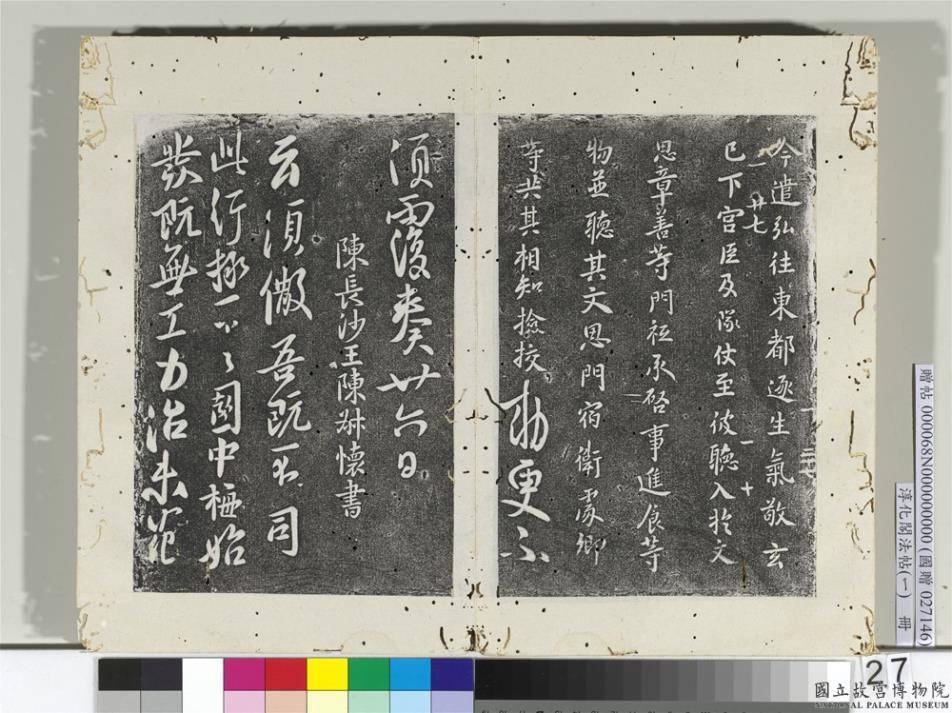 今遣弘往東都逐生氣敬玄
已下宮臣及隊仗至彼聽入於文
思章善等門祗承啓事進食等
物並聽其文思門宿衛處卿
等共其相知撿挍勅更不
須覆奏廿六日
陳長沙王陳叔懷書
云須儆吾既不司
此行極不國中極始
發既無工力治未范
一廿七
一三七
一十
贈帖 000068N000000000 (國贈 027146)
淳化閣法帖(一) 冊
27
國立故宮博物院
NATIONAL PALACE MUSEUM